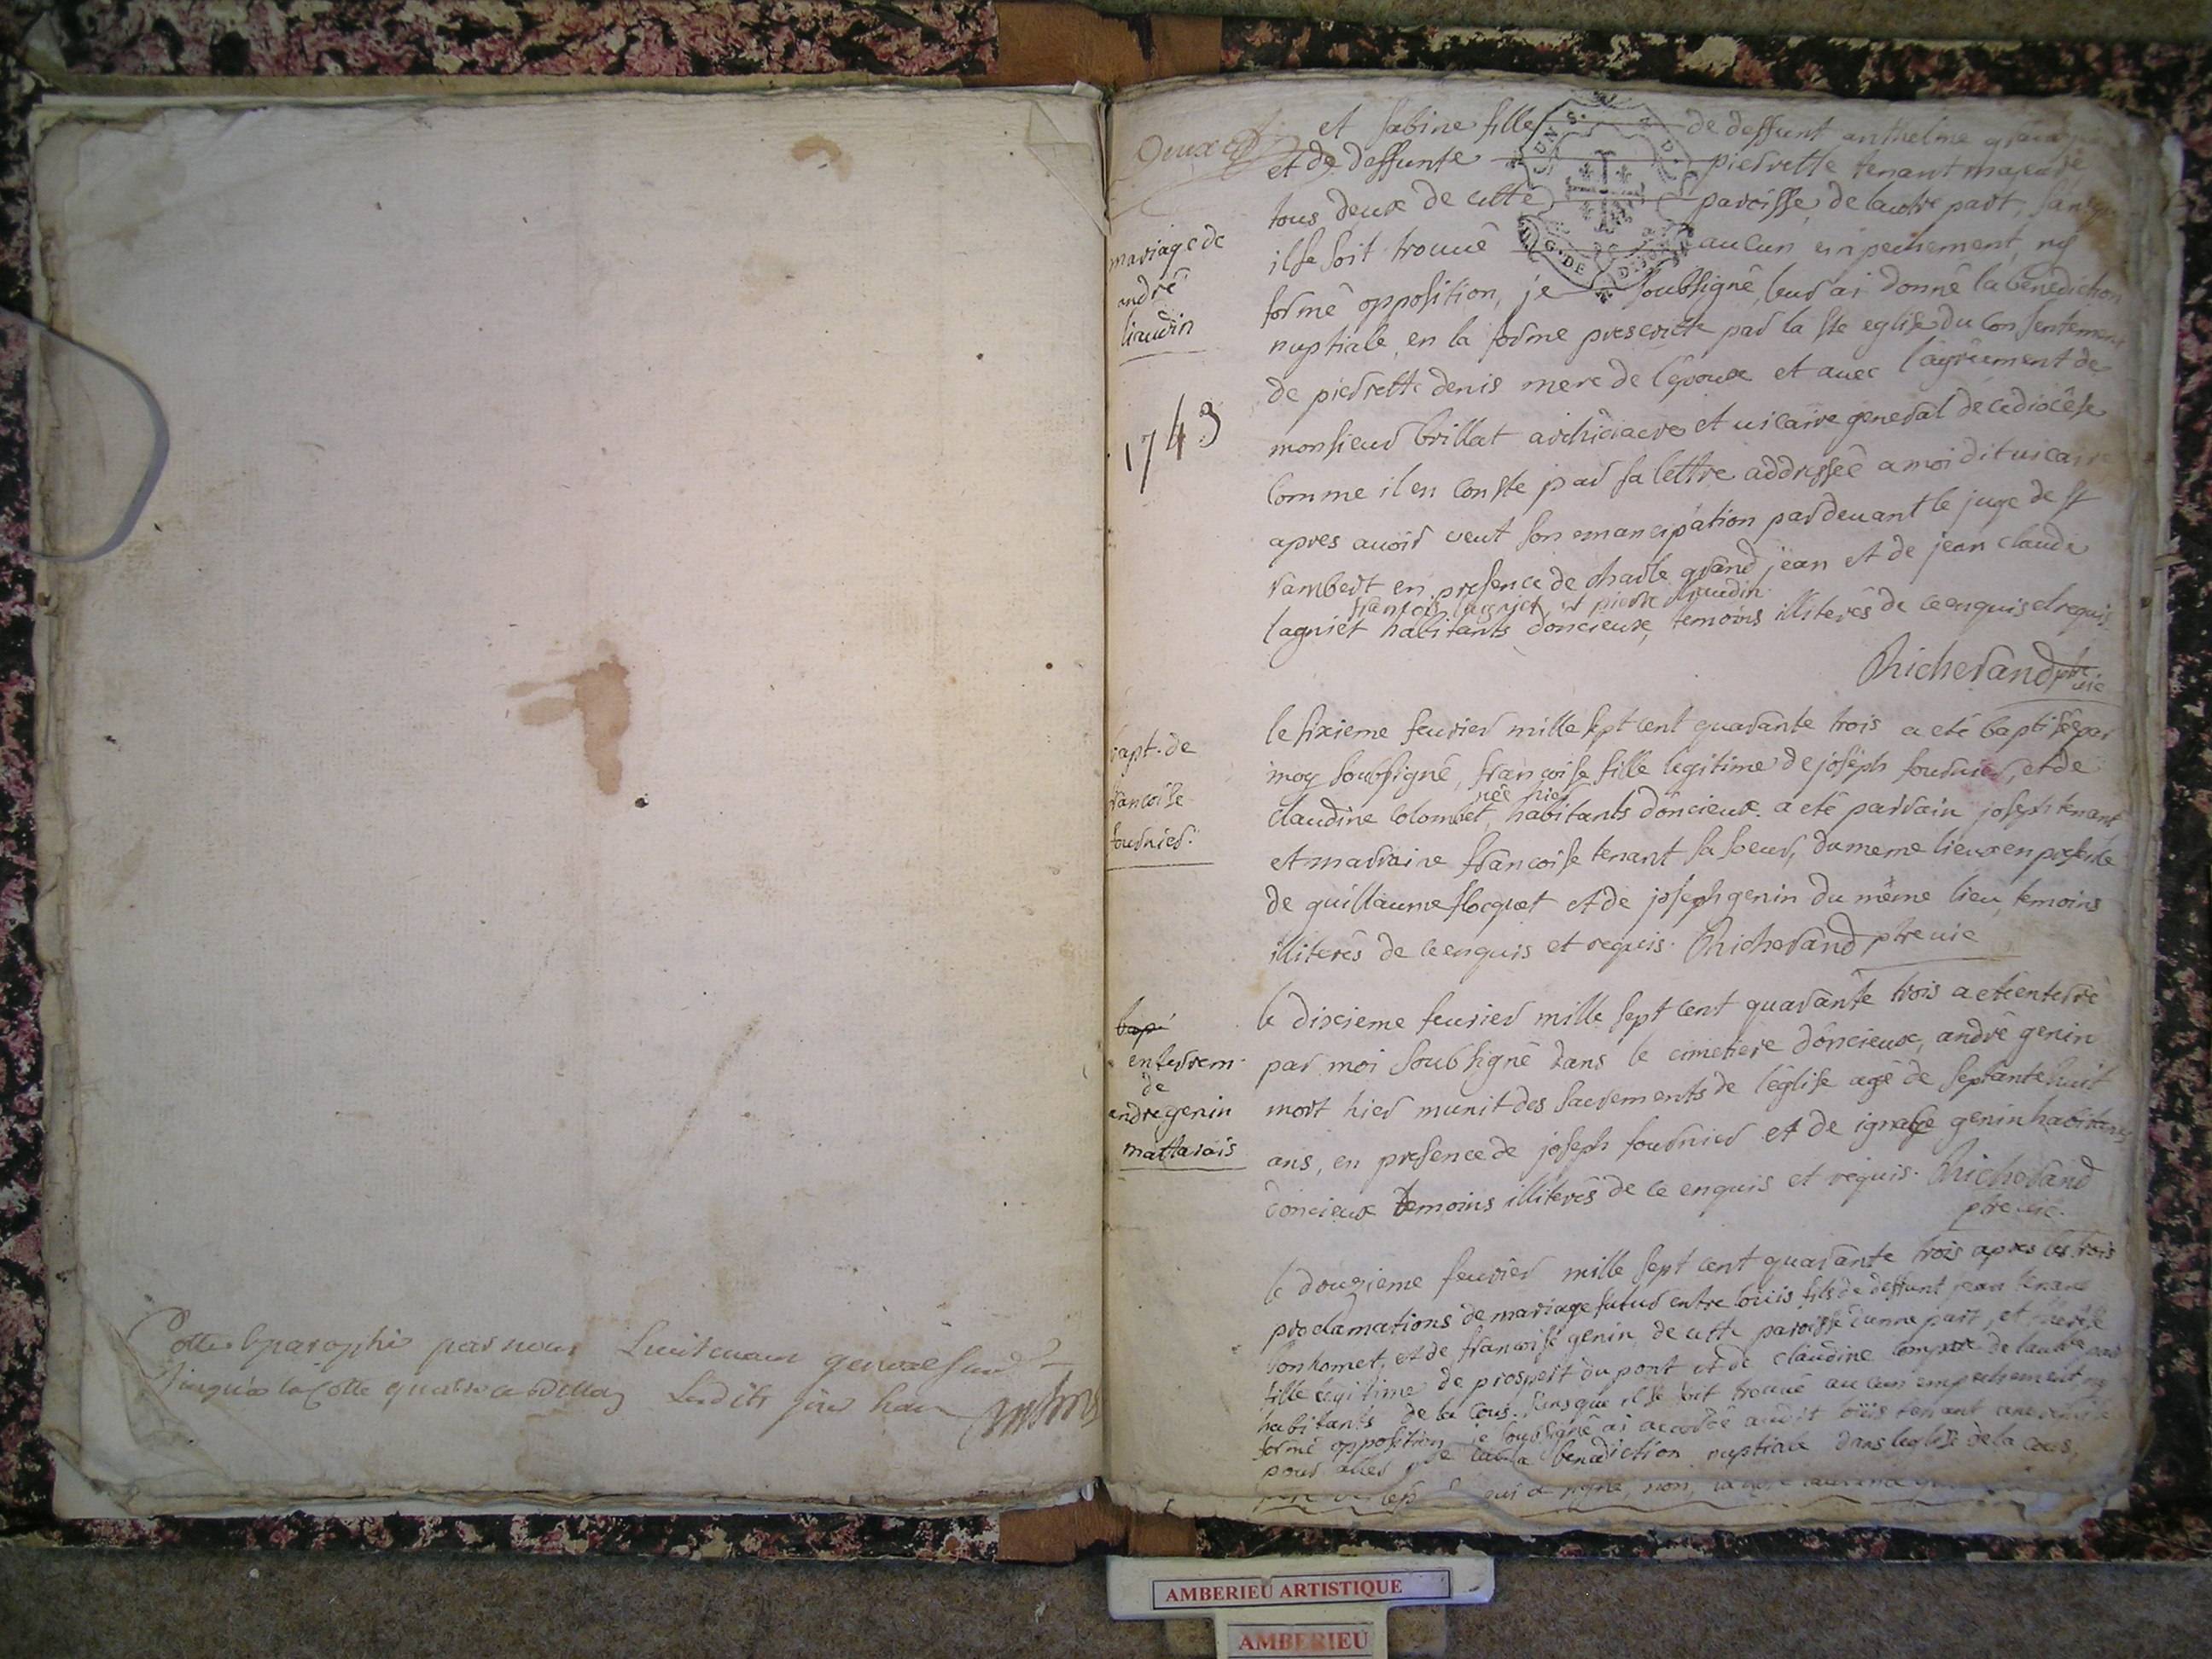 Cotte & paraphé par nous Lieutenant general
jusqu'a la Cotte
deux
et sabine fille de deffunt anthelme
et de deffunte pierrette tenant
tous deux de cette paroisse de lautre part,
il se soit trouvé aucun enpechement, ny
formé opposition, je soubsigné leur ai donné la benediction
nuptiale en la forme prescritte par la ste eglise du consentement
de pierrette denis mere de l'époux et avec l'agrèement de
monsieur brillat archidiacre et vicaire general de ce diocèse
comme il en conste par sa lettre addressée a moi dit vicaire
apres avoir veut son emancipation pardevant le juge de st
rambert en presence de charle grand jean et de jean claude
françois lagniet et pierre liaudin
lagniet habitants doncieux, temoins illiterés de ce enquis et requis.
Richerand ptre vic
mariage de
andré
liaudin
1743
le sixieme feuvrier mille sept cent quarante trois a eté baptisée par
moy soubsigné, françoise fille legitime de joseph fournier, et de
née hier
claudine colombet, habitants doncieux. a eté parrain joseph tenant
et marraine francoise tenant sa soeur, du meme lieux en presence
de guillaume flocquet et de joseph genin du même lieu, temoins
illiterés de ce enquis et requis. Richerand ptre vic
bapt. de
francoise
fournier.
le dixieme feuvrier mille sept cent quarante trois a eté enterré
par moi soubsigné dans le cimetiere doncieux, andré genin
mort hier munit des sacrements de l'église agé de septante huit
ans, en presence de joseph fournier et de ignace genin habitants
doncieux temoins illiterés de ce enquis et requis. Richerand
ptre vic.
bap
enterrem.
de
andre genin
mattarais
le douzieme feuvrier mille sept cent quarante trois apres les trois
proclamations de mariage futur entre louis fils de deffunt jean tenant
bonhomet, et de francoise genin de cette paroisse d'unne part, et
fille legitime de prospert du pont et de claudine de lautre part
habitants de la cous. sans que il se soit trouvé aucun empechement ny
formé opposition je soussigné ai accordée audit louis tenant
pour aller la benediction nuptiale dans leglise de la cous.
AMBERIEU ARTISTIQUE
AMBERIEU